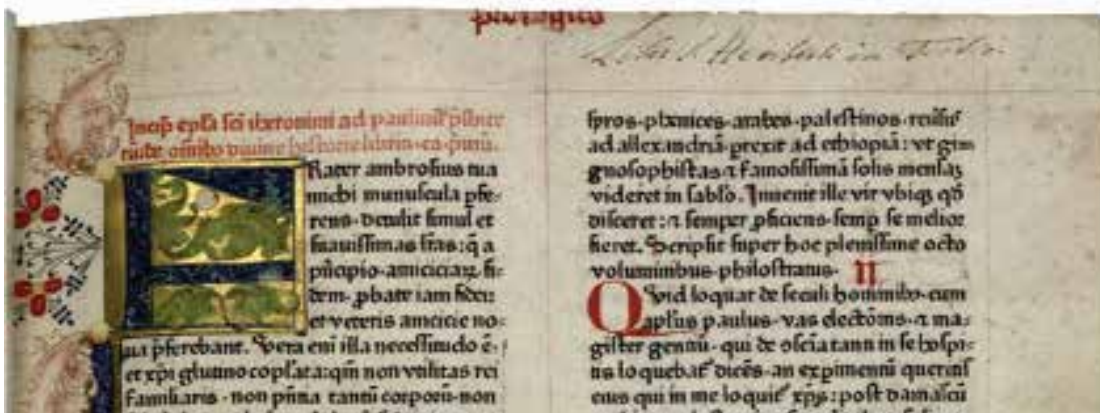 prologus
Incip̄ ep̄la sc̄i iheronimi ad paulinū p̄sbite
rū de om̄ibꝰ diuine historie libris. ca. p̄mū.
Rater ambrosius tua
michi munuscula p̄fe-
rens. detulit simul et
suauissimas l̄ras: q̄ a
p̄ncipio amiciciaꝝ fi-
dem. ꝓbate iam fidei
et veteris amicicie no-
ua p̄ferebant. Uera eni illa necessitudo ē.
et xp̄i glutino cop̄lata: qm̄ non vtilitas rei
familiaris. non p̄n̄tia tantū corporū. non
spros. phenices. arabes. palestinos. reuersꝰ
ad allexandriā. prexit ad ethiopiā: vt gim
gnosophistas ⁊ famosissimā solis mensaꝫ
videret in sablo. Inuenit ille vir vbiqꝫ qđ
disceret: ⁊ semper ꝓficiens. semp se melior
fieret. Scripsit super hoc plenissime octo
voluminibus philostratus. II
Quid loquar de seculi hominibꝰ. cum
apl̄us paulus. vas electōnis. ⁊ ma-
gister gentiū. qui de
ns loquebat᷑ dicēs. an
eius qui in me loquit᷑ xp̄s: post damascū